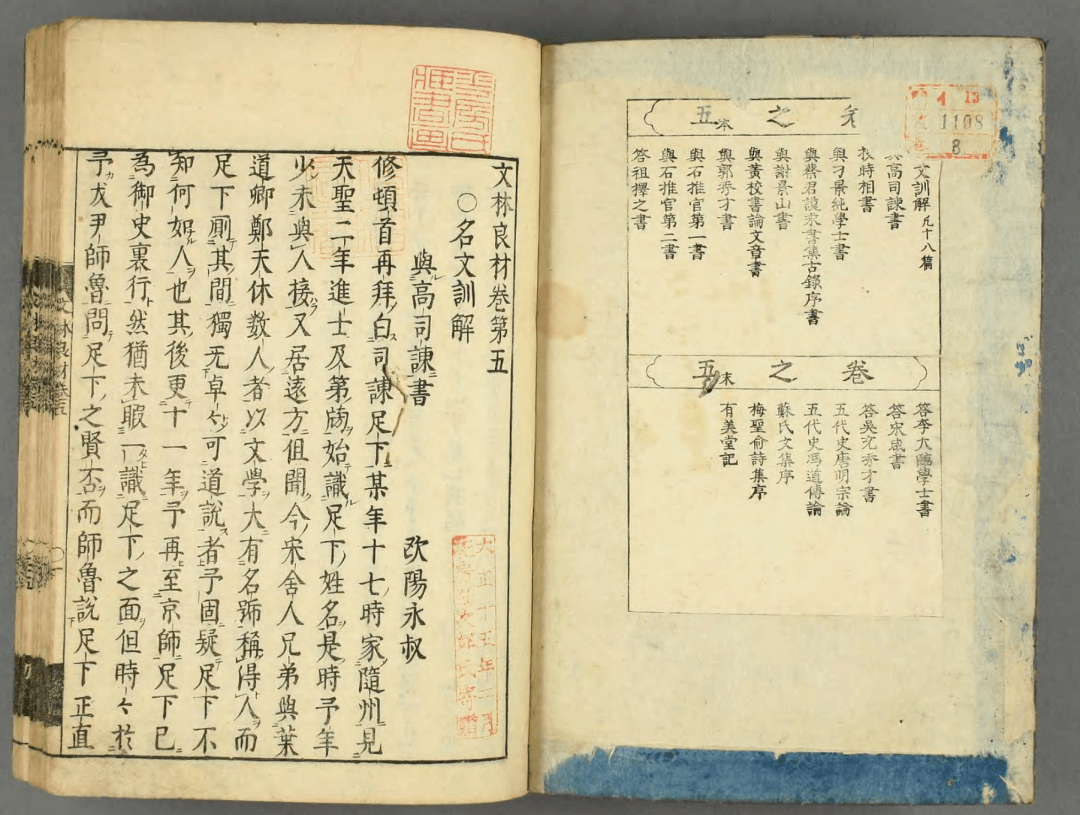 イ 13
1108
8
之五本
文訓解 凡十八篇
高司諫書
投時相書
與刁景純學士書
與蔡君謨求書集古錄序書
與謝景山書
與黃校書論文章書
與郭秀才書
與石推官第一書
與石推官第二書
答祖擇之書
卷之五末
答李大臨學士書
答宋咸書
答吳充秀才書
五代史唐明宗論
五代史馮道傳論
蘇氏文集序
梅聖俞詩集序
有美堂記
文林良材卷第五
○名文訓解
與高司諫書 欧陽永叔
修頓首再拜白司諫足下某年十七時家隨州見
天聖二年進士及第牓始識足下姓名是時予年
少未與人接又居遠方但聞今宋舍人兄弟與葉
道卿鄭天休数人者以文学大有名號稱得人而
足下厠其間獨无卓々可道説者予固疑足下不
知何如人也其後更十一年予再至京師足下已
為御史裏行然猶未暇一識足下之面但時々於
予友尹師魯問足下之賢否而師魯説足下正直
大正十五年二月
寄贈